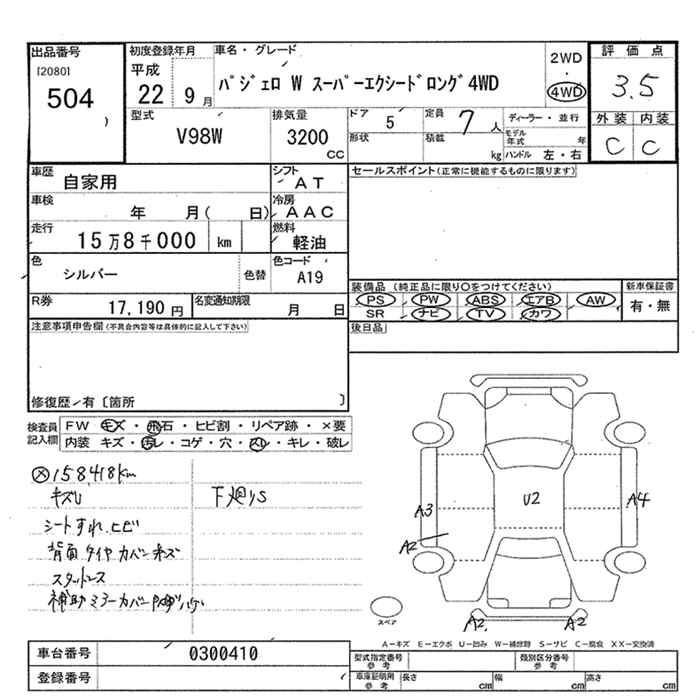 出品番号
[2080]
504
初度登録年月
平成
22 9 月
車名・グレード
パジェロ W スーパーエクシードロング4WD
2WD
・
4WD
評価点
3.5
外装 内装
C C
型式
V98W
排気量
3200
CC
ドア
5
形状
定員
7 人
積載
kg
ディーラー・並行
モデル年式 年
ハンドル 左・右
車歴
自家用
シフト
AT
車検
年 月( 日)
冷房
AAC
走行
15万8千000 km
燃料
軽油
色
シルバー
色替
色コード
A19
R券
17,190 円
名変通知期限
月 日
セールスポイント(正常に機能するものに限ります)
装備品 (純正品に限り〇をつけてください)
PS PW ABS エアB AW
SR ナビ TV カワ
新車保証書
有・無
後日品
注意事項申告欄(不具合内容等は具体的に記入して下さい)
修復歴/有〔箇所 〕
検査員
記入欄
FW キズ・飛石・ヒビ割・リペア跡・×要
内装 キズ・汚レ・コゲ・穴・スレ・キレ・破レ
158,418km
キズU
下廻りS
シートすれ、ヒビ
背面タイヤカバーキズ
スタットレス
補助ミラーカバー
U2
A3
A2
A4
A2
A2
スペア
A－キズ E－エクボ U－凹み W－補修跡 S－サビ C－腐食 XX－交換済
車台番号
0300410
登録番号
型式指定番号
参考
類別区分番号
参考
車庫証明用
参考
長さ cm 幅 cm 高さ cm